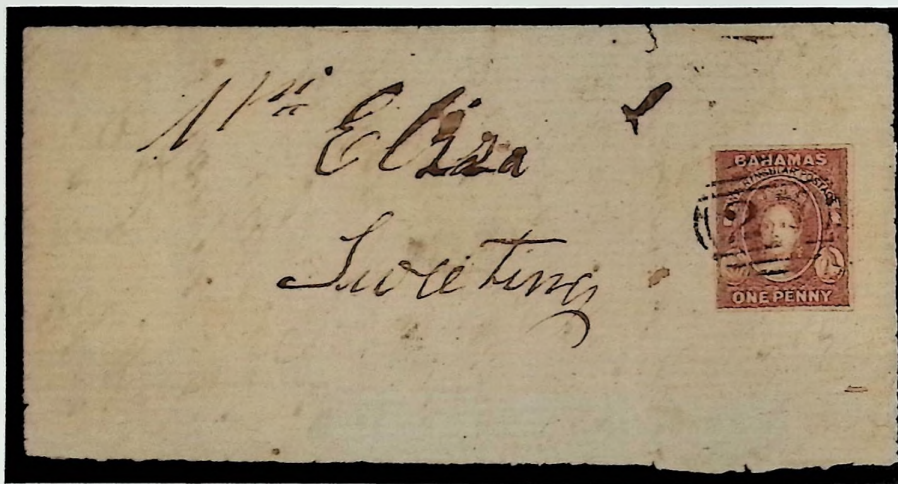 Mrs Eliza
Sweeting
BAHAMAS
INTERINSULAR POSTAGE
ONE PENNY